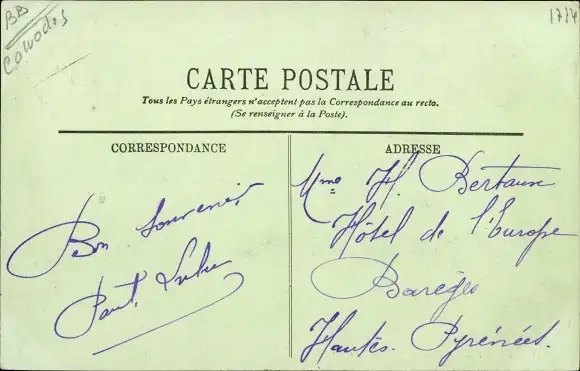 BB
Calvados
1714
CARTE POSTALE
Tous les Pays étrangers n'acceptent pas la Correspondance au recto.
(Se renseigner à la Poste).
CORRESPONDANCE
Bon souvenir
Paul
ADRESSE
Mme H. Bertaux
Hôtel de l'Europe
Barèges
Hautes. Pyrénées.